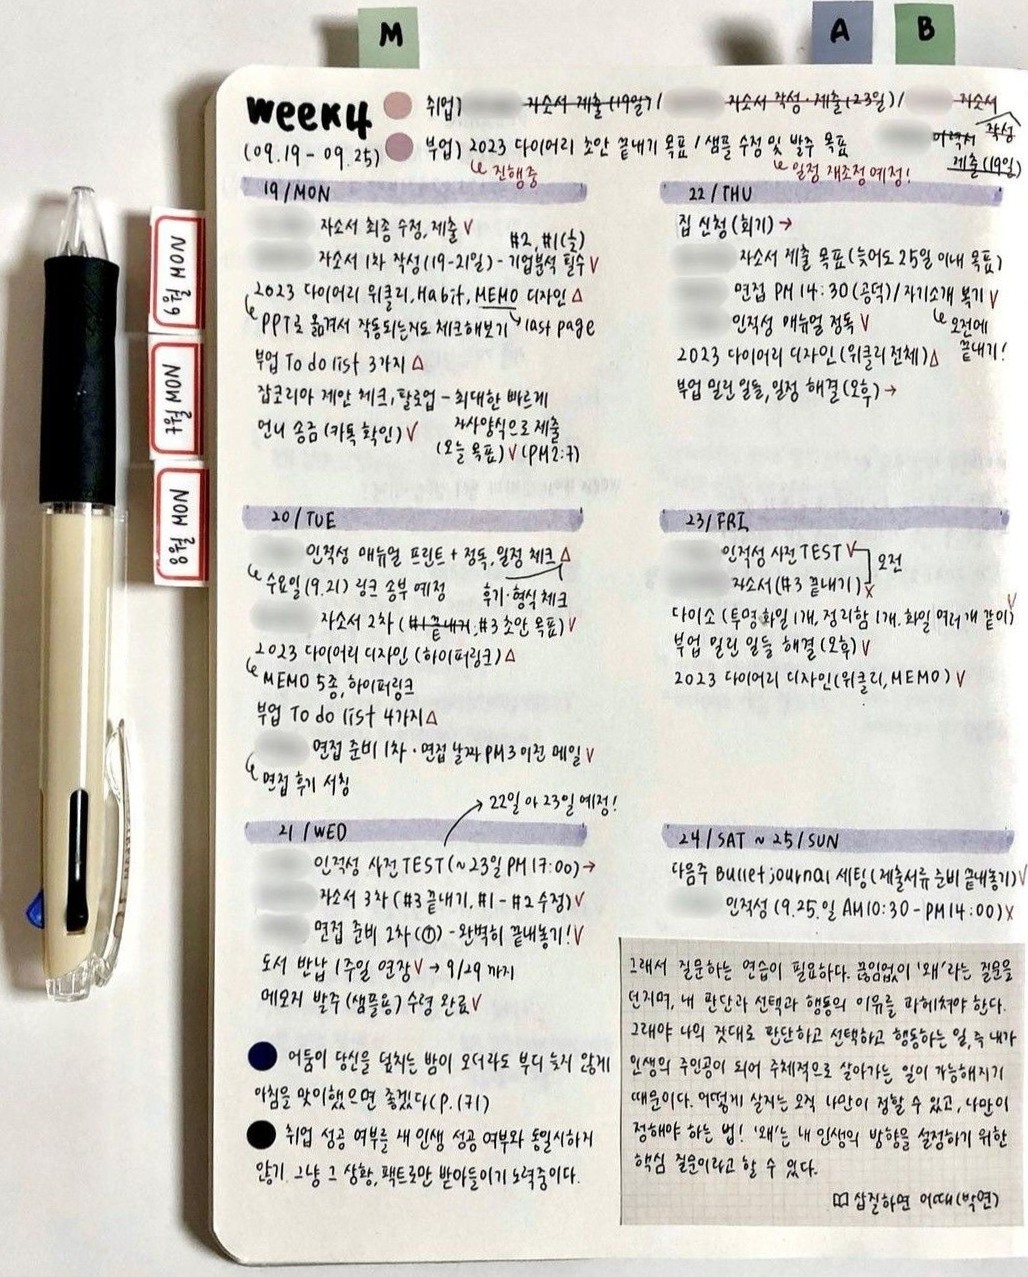 M
A
B
week4
(09.19 - 09.25)
취업) 자소서 제출(19일) / 자소서 작성·제출(23일) / 자소서 작성
이력서 제출(19일)
부업) 2023 다이어리 초안 끝내기 목표 / 샘플 수정 및 발주 목표
↳ 진행중
↳ 일정 재조정 예정!
6월 MON
7월 MON
8월 MON
19/MON
자소서 최종 수정, 제출 V
#2, #1(上)
자소서 1차 작성(19-21일) - 기업분석 필수 V
2023 다이어리 위클리, Habit, MEMO 디자인 △
↳ PPT로 옮겨서 작동되는지도 체크해보기
last page
부업 To do list 3가지 △
잡코리아 제안 체크, 팔로업 - 최대한 빠르게
자사양식으로 제출
(오늘 목표) V (PM2:7)
언니 송금 (카톡 확인) V
20/TUE
인적성 매뉴얼 프린트 + 정독, 일정 체크 △
↳ 수요일(9.21) 링크 송부 예정
후기·형식 체크
자소서 2차 (#1 끝내기, #3 초안 목표) V
2023 다이어리 디자인 (하이퍼링크) △
↳ MEMO 5종, 하이퍼링크
부업 To do list 4가지 △
면접 준비 1차 · 면접 날짜 PM3 이전 메일 V
↳ 면접 후기 서칭
21/WED
→ 22일 or 23일 예정!
인적성 사전 TEST (~23일 PM 17:00) →
자소서 3차 (#3 끝내기, #1-#2 수정) V
면접 준비 2차 - 완벽히 끝내놓기! V
도서 반납 1주일 연장 V → 9/29 까지
메모지 발주 (샘플용) 수령 완료 V
어둠이 당신을 덮치는 밤이 오더라도 부디 늦지 않게
아침을 맞이했으면 좋겠다 (P.171)
취업 성공 여부를 내 인생 성공 여부와 동일시하지
않기. 그냥 그 상황, 팩트로만 받아들이기 노력중이다.
22/THU
집 신청 (회기) →
자소서 제출 목표 (늦어도 25일 이내 목표)
면접 PM 14:30 (공덕) / 자기소개 복기 V
↳ 오전에 끝내기!
인적성 매뉴얼 정독 V
2023 다이어리 디자인 (위클리 전체) △
부업 밀린 일들, 일정 해결 (오후) →
23/FRI
인적성 사전 TEST V
오전
자소서 (#3 끝내기) X
다이소 (투명 화일 1개, 정리함 1개, 화일 여러 개 같이) V
부업 밀린 일들 해결 (오후) V
2023 다이어리 디자인 (위클리, MEMO) V
24/SAT ~ 25/SUN
다음주 Bullet journal 세팅 (제출서류 준비 끝내놓기) V
인적성 (9.25.일 AM 10:30 - PM 14:00) X
그래서 질문하는 연습이 필요하다. 끊임없이 '왜'라는 질문을
던지며, 내 판단과 선택과 행동의 이유를 파헤쳐야 한다.
그래야 나의 잣대로 판단하고 선택하고 행동하는 일, 즉 내가
인생의 주인공이 되어 주체적으로 살아가는 일이 가능해지기
때문이다. 어떻게 살지는 오직 나만이 정할 수 있고, 나만이
정해야 하는 법! '왜'는 내 인생의 방향을 설정하기 위한
핵심 질문이라고 할 수 있다.
삽질하면 어때 (박연)